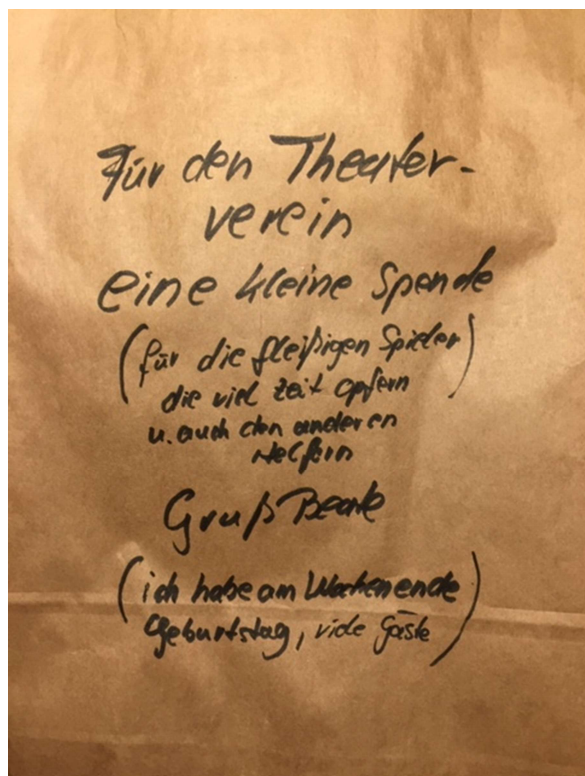 Für den Theater-
verein
eine kleine Spende
(für die fleißigen Spieler)
die viel Zeit opfern
u. auch den anderen
Helfern
Gruß Beate
(ich habe am Wochenende
Geburtstag, viele Gäste)